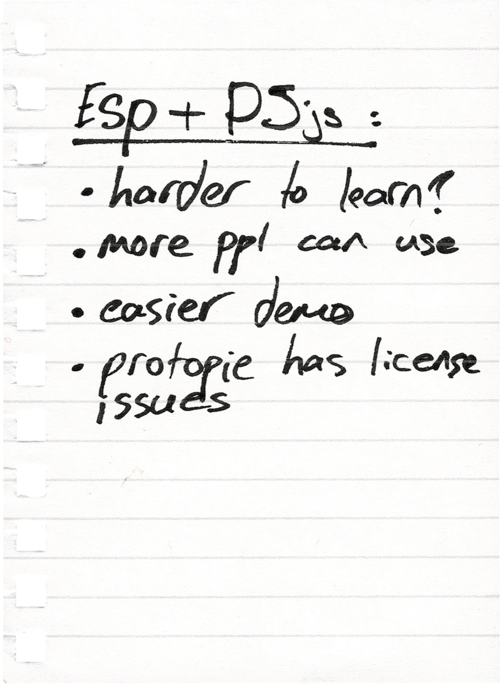 Esp + P5js :
• harder to learn?
• more ppl can use
• easier demo
• protopie has license
issues